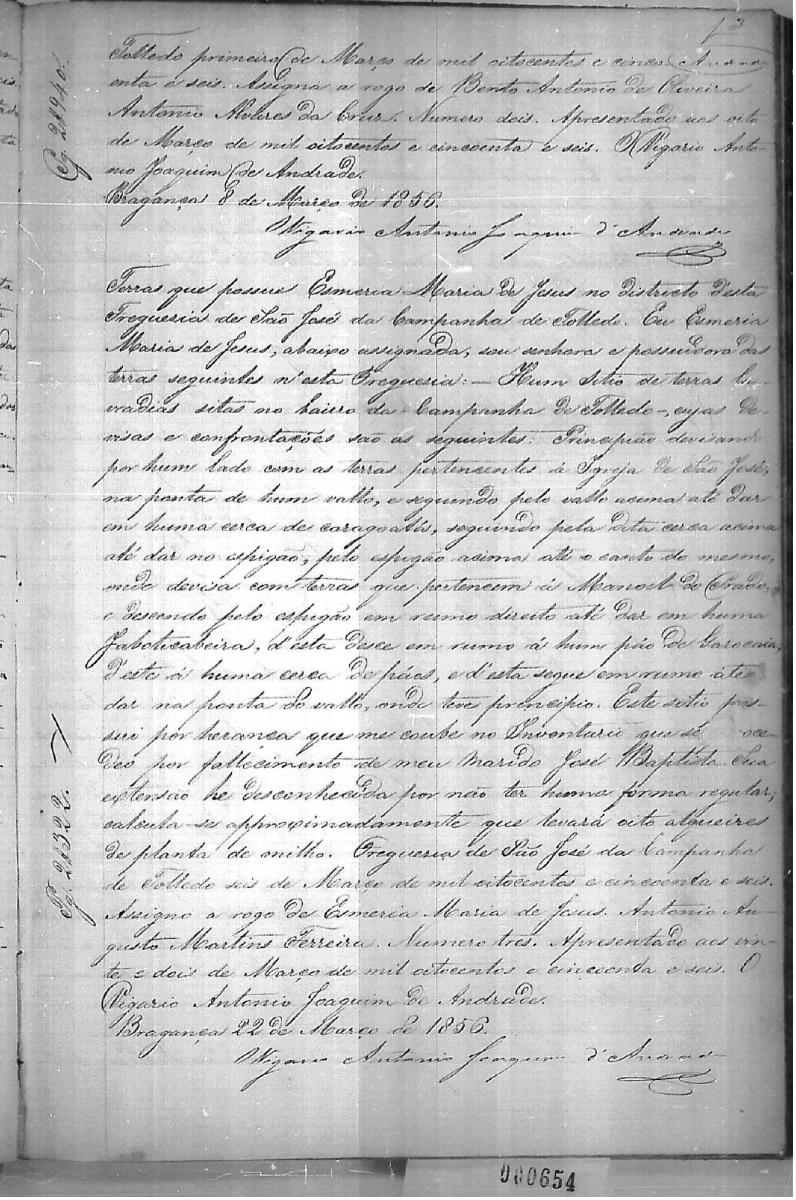 3
Tolledo primeiro de Março de mil oitocentos e cinco
enta e seis. Assigna a rogo de Bento Antonio de Oliveira
Antonio Alvares da Cruz. Numero dois. Apresentado aos oito
de Março de mil oitocentos e cincoenta e seis. O Vigario Anto-
nio Joaquim de Andrade.
Bragança 8 de Março de 1856.
Vigario Antonio Joaquim d'Andrade
Terras que possue Esmeria Maria de Jesus no districto desta
Freguezia de São José da Campanha de Tolledo. Eu Esmeria
Maria de Jesus, abaixo assignada, sou senhora e possuidora das
terras seguintes n'esta Freguezia: — Hum Sitio de terras la-
vradias sitas no bairro da - Campanha de Tolledo -, cujas de-
visas e confrontações são as seguintes: Principião devisando
por hum lado com as terras pertencentes á Igreja de São José,
na ponta de hum vallo, e seguindo pelo vallo acima até dar
em huma cerca de caragoatás, seguindo pela dita cerca acima
até dar no espigão, pelo espigão acima até o canto do mesmo,
onde devisa com terras que pertencem á Manoel do Prado,
e descendo pelo espigão em rumo direito até dar em huma
Jaboticabeira, d'esta desce em rumo á hum páo de Garocaia,
d'este á huma cerca de páos, e d'esta segue em rumo até
dar na ponta do vallo, onde teve principio. Este sitio pos-
sui por herança que me coube no Inventario que se
deo por fallecimento de meu marido José Baptista. Sua
extensão he desconhecida por não ter huma forma regular,
calcula-se approximadamente que levará oito alqueires
de planta de milho. Freguezia de São José da Campanha
de Tolledo seis de Março de mil oitocentos e cincoenta e seis.
Assigno a rogo de Esmeria Maria de Jesus. Antonio Au-
gusto Martins Ferreira. Numero tres. Apresentado aos vin-
te e dois de Março de mil oitocentos e cincoenta e seis. O
Vigario Antonio Joaquim de Andrade.
Bragança 22 de Março de 1856.
Vigario Antonio Joaquim d'Andrade
Pg. 2$940.
Pg. 2$322.
000654